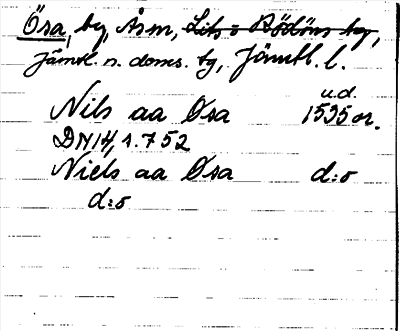 Ösa, by, Ås sn, Lits o Rödöns tg,
Jämtl. n. doms. tg, Jämtl. l.
u.d.
Nils aa Øsa 1535 or.
DN 14, s. 752
Niels aa Øsa d:o
d:o